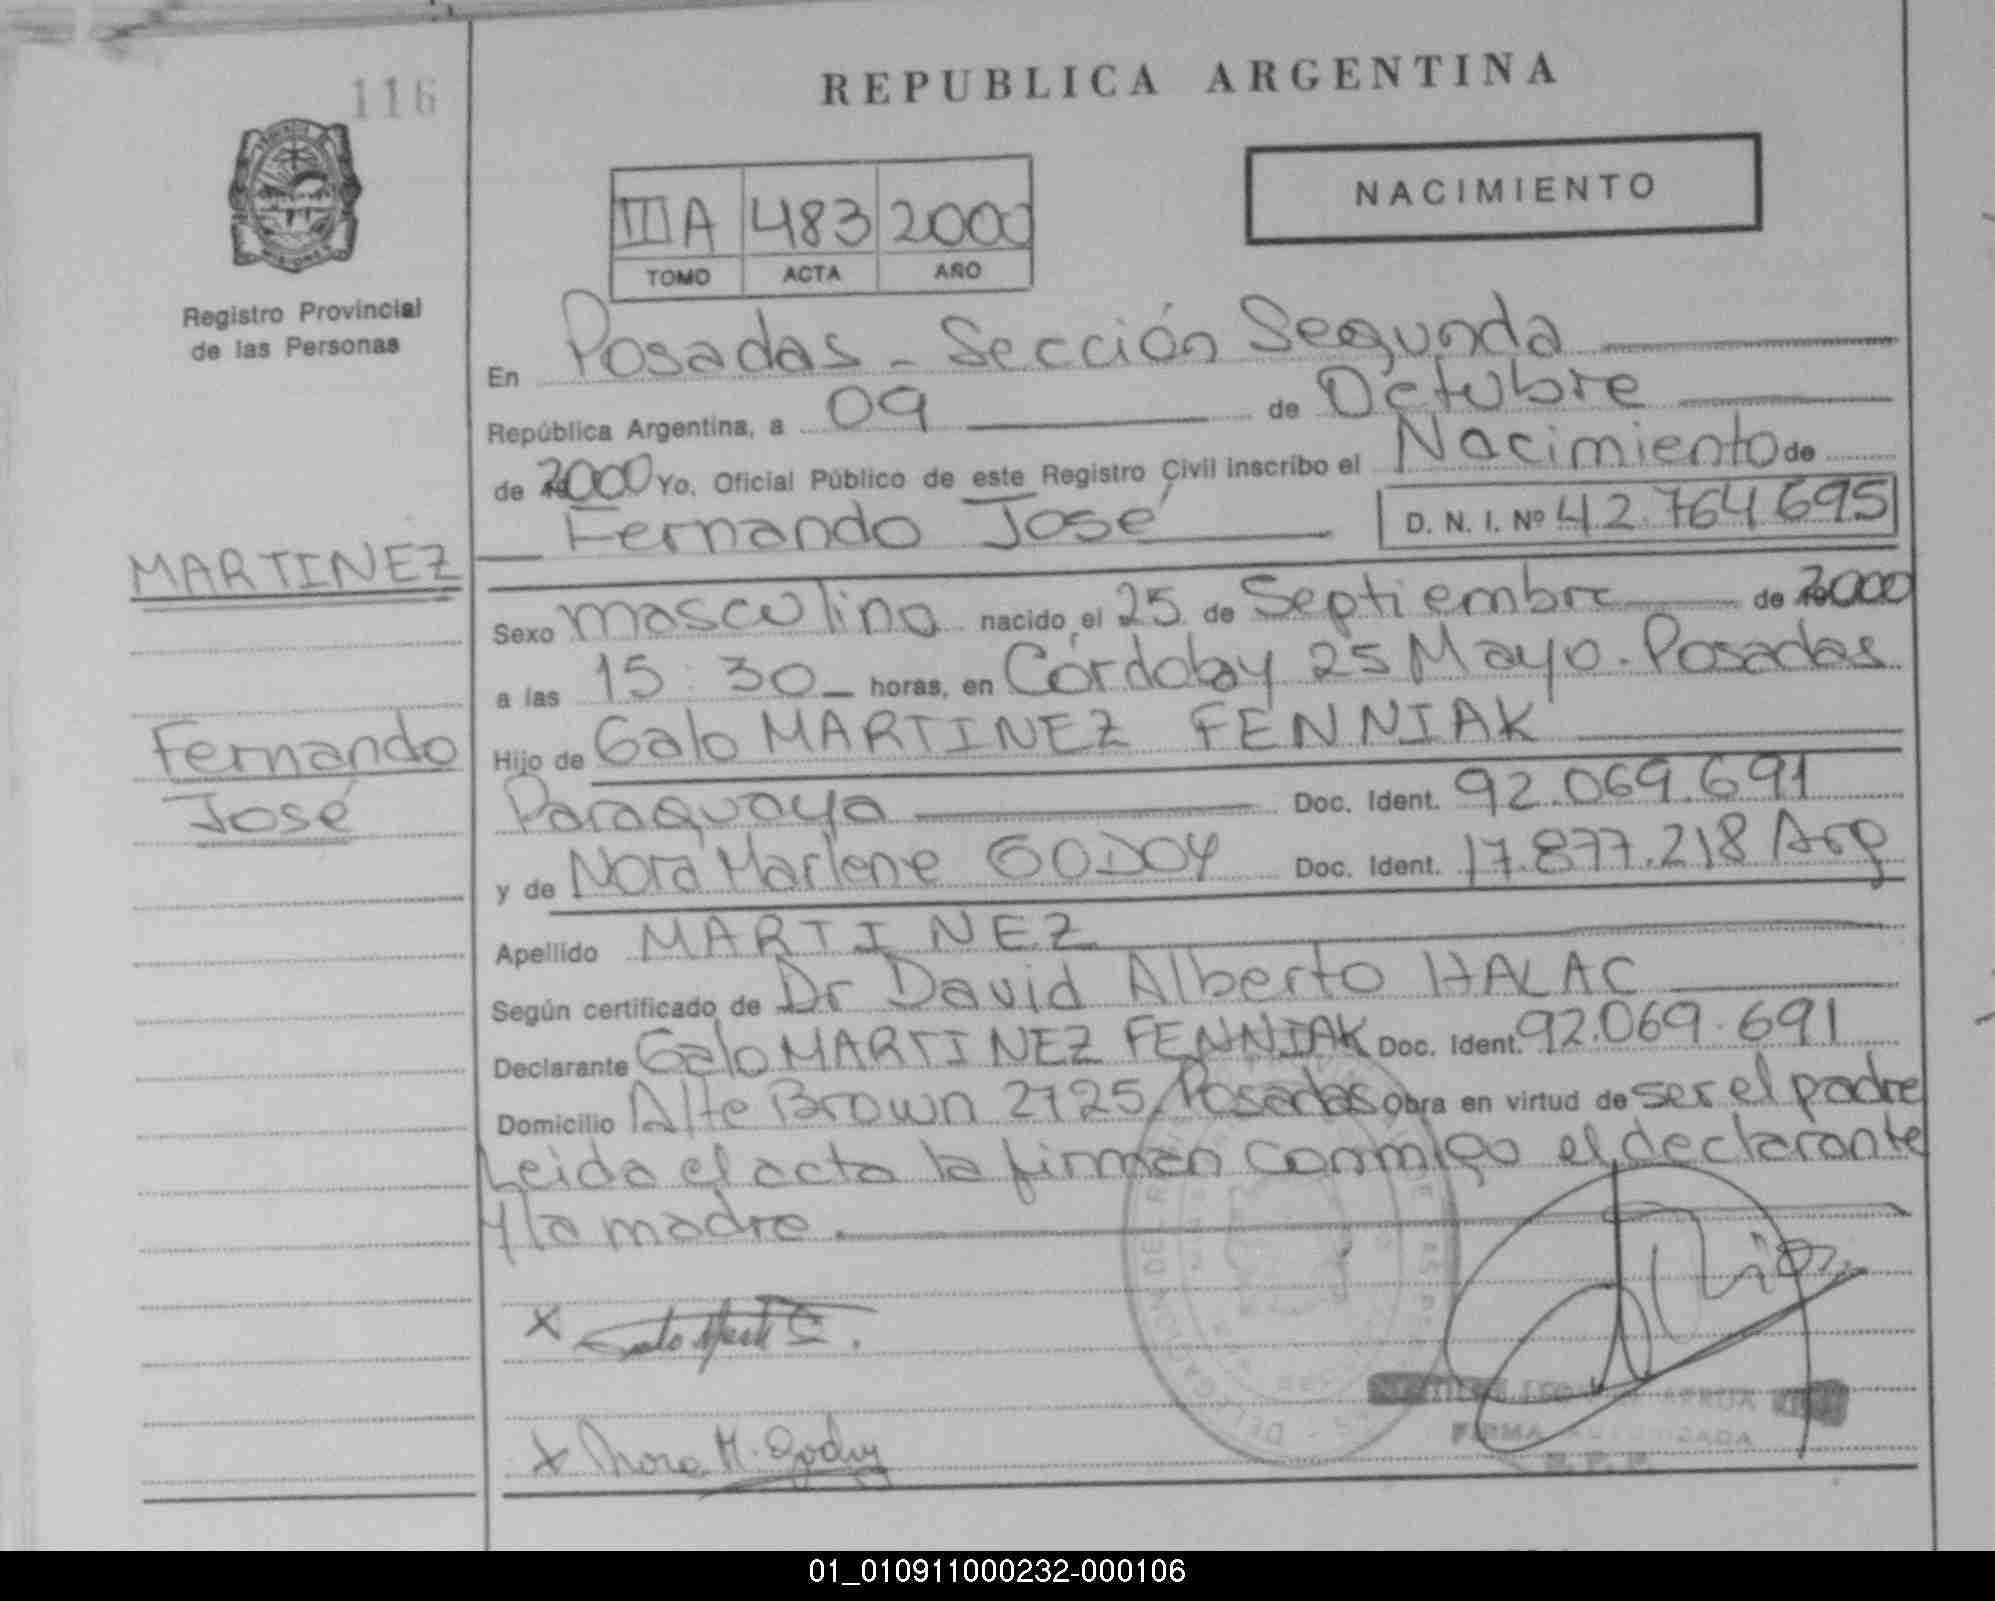 116
REPUBLICA ARGENTINA
NACIMIENTO
IIIA 483 2000
TOMO ACTA AÑO
Registro Provincial
de las Personas
En Posadas - Sección Segunda
República Argentina, a 09 de Octubre
de 2000 Yo, Oficial Público de este Registro Civil inscribo el Nacimiento de
Fernando José D. N. I. Nº 42.764.695
MARTINEZ
Sexo masculino nacido el 25 de Septiembre de 2000
a las 15:30 horas, en Córdoba y 25 Mayo. Posadas
Fernando
José
Hijo de Galo MARTINEZ FENNIAK
Paraguaya Doc. Ident. 92.069.691
y de Nora Marlene GODOY Doc. Ident. 17.877.218 Arg
Apellido MARTINEZ
Según certificado de Dr David Alberto HALAC
Declarante Galo MARTINEZ FENNIAK Doc. Ident. 92.069.691
Domicilio Alte Brown 2725 Posadas Obra en virtud de ser el padre
Leida el acta la firman conmigo el declarante
y la madre.
x
x Nora M. Godoy
FIRMA AUTORIZADA
01_010911000232-000106